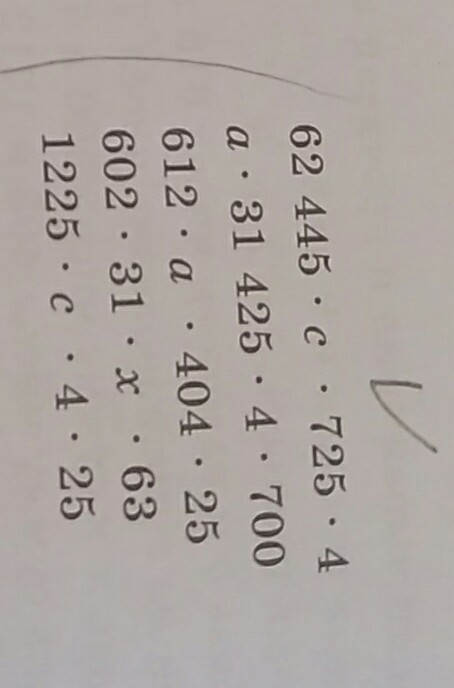 62 445 · c · 725 · 4
a · 31 425 · 4 · 700
612 · a · 404 · 25
602 · 31 · x · 63
1225 · c · 4 · 25